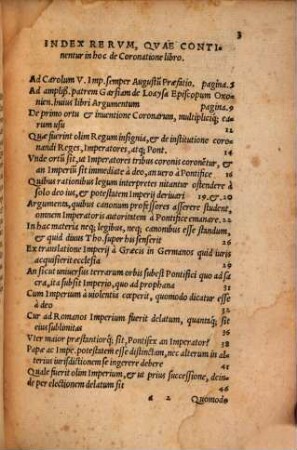 3
INDEX RERVM, QVAE CONTI
nentur in hoc de Coronatione libro.
Ad Carolum V. Imp. semper Augustũ Præfatio. pagina. 5
Ad ampliss. patrem Garsiam de Loaysa Episcopum Oxo-
nien. huius libri Argumentum pagina. 9
De primo ortu & inuentione Coronarum, multipliciq; ea-
rum usu 12
Quæ fuerint olim Regum insignia, & de institutione coro
nandi Reges, Imperatores, atq; Pont. 14
Vnde ortũ sit, ut Imperatores tribus coronis coronẽtur, &
an Imperiũ sit immediate à deo, an uero à Pontifice 16
Quibus rationibus legum interpretes nitantur ostendere à
solo deo ius, & potestatem Imperij deriuari 19. & 20
Argumenta, quibus canonum professores asserere student,
omnem Imperatoris autoritatem à Pontifice emanare. 22
In hac materia neq; legibus, neq; canonibus esse standum,
& quid diuus Tho. super his senserit 26
Ex translatione Imperij à Græcis in Germanos quid iuris
acquisierit ecclesia 30
An sicut uniuersus terrarum orbis subest Pontifici quo ad sa
cra, ita subsit Imperio, quo ad prophana 31
Cum Imperium à uiolentia cœperit, quomodo dicatur esse
à deo 34
Cur ad Romanos Imperium fuerit delatum, quantaq; sit
eius sublimitas 36
Vter maior præstantiorq; sit, Pontifex an Imperator? 38
Papæ ac Impe. potestatem esse distinctam, nec alterum in al-
terius iurisdictionem se ingerere debere 46
Quale fuerit olim Imperium, & ut prius successione, dein-
de per electionem delatum sit 48
a 2 Quomodo